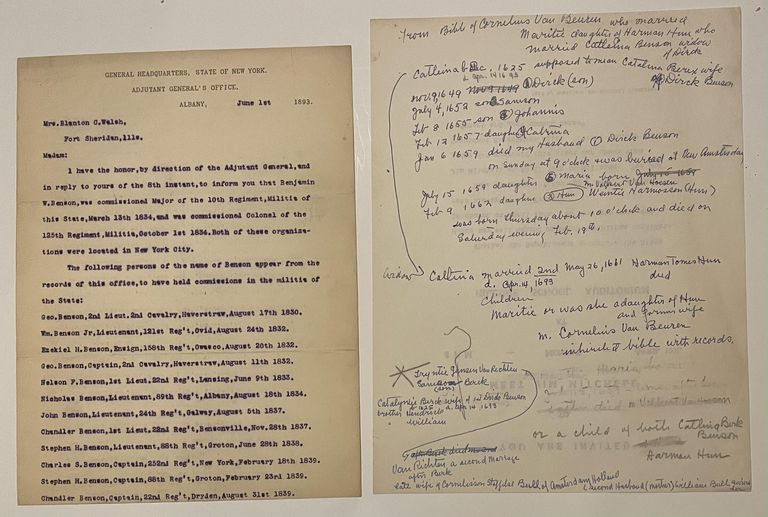 GENERAL HEADQUARTERS, STATE OF NEW YORK.
ADJUTANT GENERAL'S OFFICE.
ALBANY, June 1st 1893.
Mrs. Blanton C. Welsh,
Fort Sheridan, Ills.
Madam:
I have the honor, by direction of the Adjutant General, and
in reply to yours of the 8th instant, to inform you that Benjamin
W. Benson, was commissioned Major of the 10th Regiment, Militia of
this State, March 13th 1834, and was commissioned Colonel of the
125th Regiment, Militia, October 1st 1834. Both of these organiza-
tions were located in New York City.
The following persons of the name of Benson appear from the
records of this office, to have held commissions in the militia of
the State:
Geo. Benson, 2nd Lieut. 2nd Cavalry, Haverstraw, August 17th 1830.
Wm. Benson Jr, Lieutenant, 121st Reg't, Ovid, August 24th 1832.
Ezekiel H. Benson, Ensign, 158th Reg't, Owasco, August 20th 1832.
Geo. Benson, Captain, 2nd Cavalry, Haverstraw, August 11th 1832.
Nelson P. Benson, 1st Lieut. 22nd Reg't, Lansing, June 9th 1833.
Nicholas Benson, Lieutenant, 89th Reg't, Albany, August 18th 1834.
John Benson, Lieutenant, 24th Reg't, Galway, August 5th 1837.
Chandler Benson, 1st Lieut. 22nd Reg't, Bensonville, Nov. 28th 1837.
Stephen H. Benson, Lieutenant, 88th Reg't, Groton, June 28th 1838.
Charles S. Benson, Captain, 252nd Reg't, New York, February 18th 1839.
Stephen H. Benson, Captain, 88th Reg't, Groton, February 23rd 1839.
Chandler Benson, Captain, 22nd Reg't, Dryden, August 31st 1839.
From Bible of Cornelius Van Beuren who married
Maritie daughter of Harman Hun who
married Catleina Benson widow
of Dirck
Catleina b Dec. 1625 supposed to mean Catalina Berck wife
d. Apr. 14 1693 of Dirck Benson
Nov 9, 1649 Nov 9 1649 ① Dirck (son)
July 4, 1652 son ② Samson
Feb 8 1655 son ③ Johannis
Feb 12 1657 daughter ④ Catrina
Jan 6 1659 died my Husband ① Dirck Benson
on Sunday at 9 o'clock & was buried at New Amsterdam
July 15 1659 daughter ⑤ Maria born July 15 1659
m. Volkert Van Hoesen
Feb 9 1662 daughter ① Hun Weintie Harmonsen (Hun)
was born Thursday about 10 o'clock and died on
Saturday evening Feb. 19th.
Widow Catlina married 2nd May 26, 1661 Harman Tomes Hun
d. Apr. 14, 1693 died
Children
Maritie or was she a daughter of Hun
and former wife
m. Cornelius Van Beuren
inherited bible with records.
Tryntie Jansen Van Rechter
Samson Berck
(son)
Catalyntie Berck wife of Dirck Benson
b 1625 d. Apr. 14 1693
brother Hendrick
William
or a child of both Catlina Berck
Benson
Harman Hun
Van Richten a second Marriage
after Berck
late wife of Cornelissen Stoffelse Bull of Amsterdam Holland
(second Husband (mother) William Bull